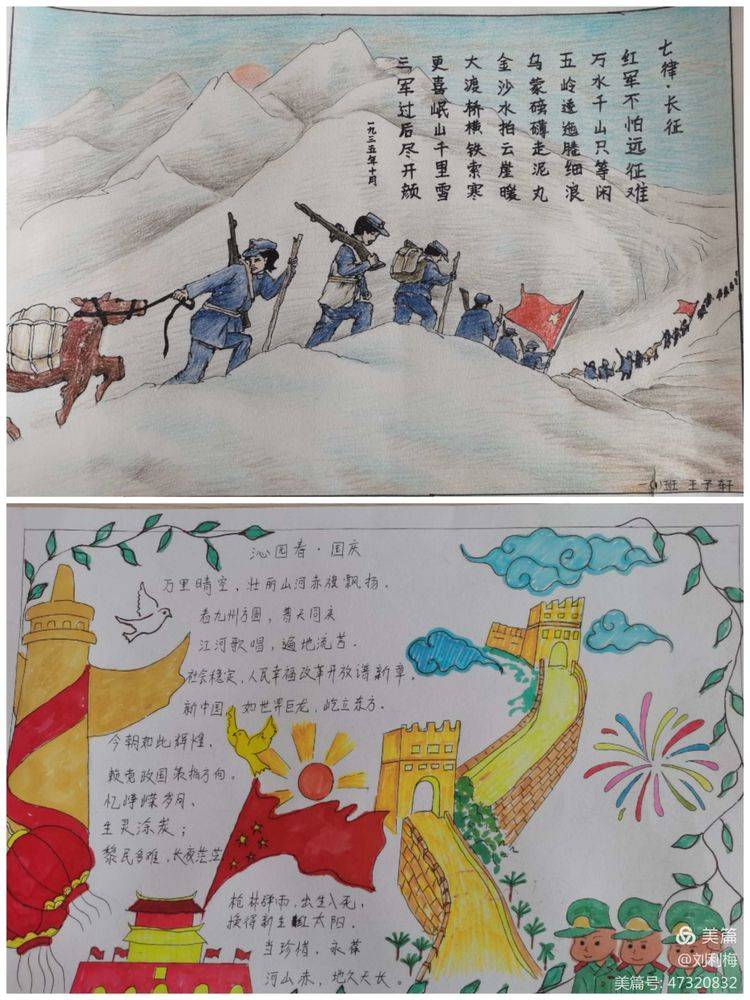 七律·长征
红军不怕远征难
万水千山只等闲
五岭逶迤腾细浪
乌蒙磅礴走泥丸
金沙水拍云崖暖
大渡桥横铁索寒
更喜岷山千里雪
三军过后尽开颜
一九三五年十月
一(1)班 王子轩
沁园春·国庆
万里晴空，壮丽山河赤旗飘扬．
看九州方圆，普天同庆
江河歌唱，遍地流芳．
社会稳定，人民幸福改革开放谱新章．
新中国，如世界巨龙，屹立东方．
今朝如此辉煌．
赖党政国策指方向．
忆峥嵘岁月、
生灵涂炭；
黎民多难，长夜茫茫
枪林弹雨，出生入死，
换得新生红太阳．
当珍惜，永葆
河山赤，地久天长．
美篇
@刘利梅
美篇号: 47320832